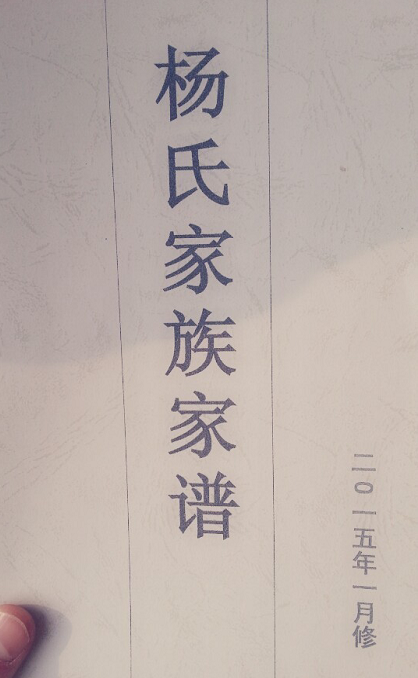 杨氏家族家谱
二〇一五年一月修